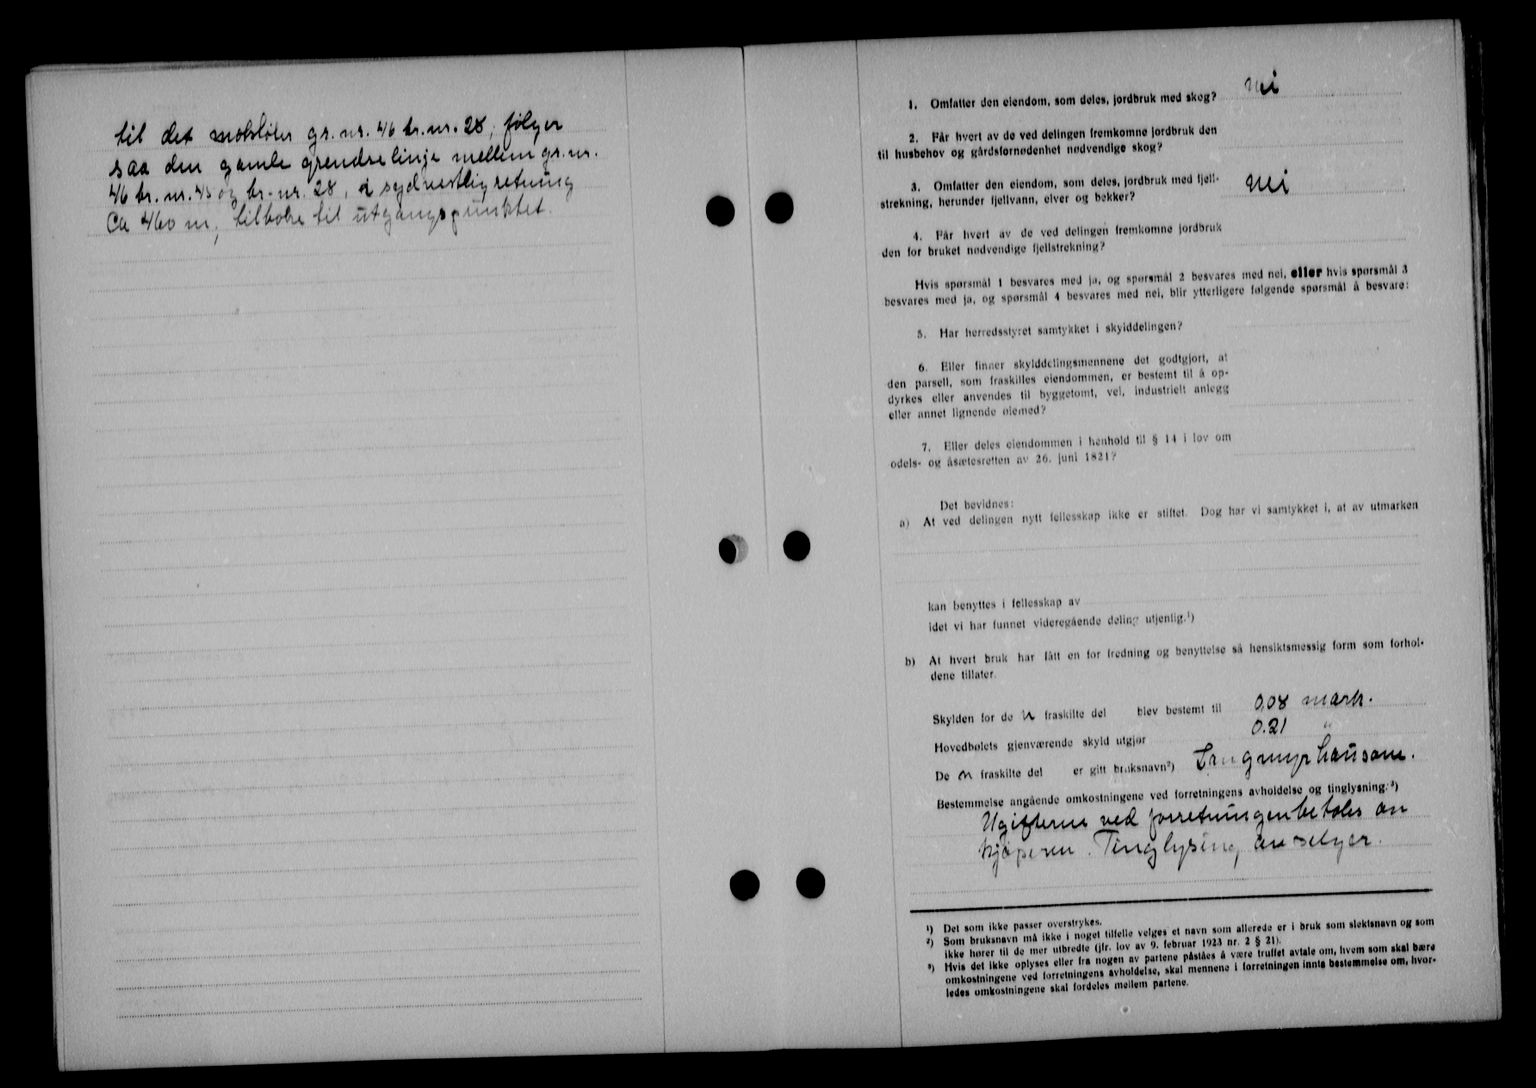 til det motstöter gr. nr. 46 br. nr. 28, følger
saa den gamle grendselinje mellem gr. nr.
46 br. nr. 45 og br. nr. 28, i sydvestlig retning
Ca 460 m, tilbake til utgangspunktet.
1. Omfatter den eiendom, som deles, jordbruk med skog? nei
2. Får hvert av de ved delingen fremkomne jordbruk den
til husbehov og gårdsfornødenhet nødvendige skog?
3. Omfatter den eiendom, som deles, jordbruk med fjell-
strekning, herunder fjellvann, elver og bekker? nei
4. Får hvert av de ved delingen fremkomne jordbruk
den for bruket nødvendige fjellstrekning?
Hvis spørsmål 1 besvares med ja, og spørsmål 2 besvares med nei, eller hvis spørsmål 3
besvares med ja, og spørsmål 4 besvares med nei, blir ytterligere følgende spørsmål å besvare:
5. Har herredsstyret samtykket i skylddelingen?
6. Eller finner skylddelingsmennene det godtgjort, at
den parsell, som fraskilles eiendommen, er bestemt til å op-
dyrkes eller anvendes til byggetomt, vei, industrielt anlegg
eller annet lignende øiemed?
7. Eller deles eiendommen i henhold til § 14 i lov om
odels- og åsætesretten av 26. juni 1821?
Det bevidnes:
a) At ved delingen nytt fellesskap ikke er stiftet. Dog har vi samtykket i, at av utmarken
kan benyttes i fellesskap av
idet vi har funnet videregående deling utjenlig.¹)
b) At hvert bruk har fått en for fredning og benyttelse så hensiktsmessig form som forhol-
dene tillater.
Skylden for den fraskilte del blev bestemt til 0,08 mark.
Hovedbølets gjenværende skyld utgjør 0.21 "
Den fraskilte del er gitt bruksnavn²) Langmyrhausane.
Bestemmelse angående omkostningene ved forretningens avholdelse og tinglysning:³)
Ugifterne ved forretningen betales av
kjøperen. Tinglysing av selger.
¹) Det som ikke passer overstrykes.
²) Som bruksnavn må ikke i noget tilfelle velges et navn som allerede er i bruk som slektsnavn og som
ikke hører til de mer utbredte (jfr. lov av 9. februar 1923 nr. 2 § 21).
³) Hvis det ikke oplyses eller fra nogen av partene påståes å være truffet avtale om, hvem som skal bære
omkostningene ved forretningens avholdelse, skal mennene i forretningen innta bestemmelse om, hvor-
ledes omkostningene skal fordeles mellem partene.